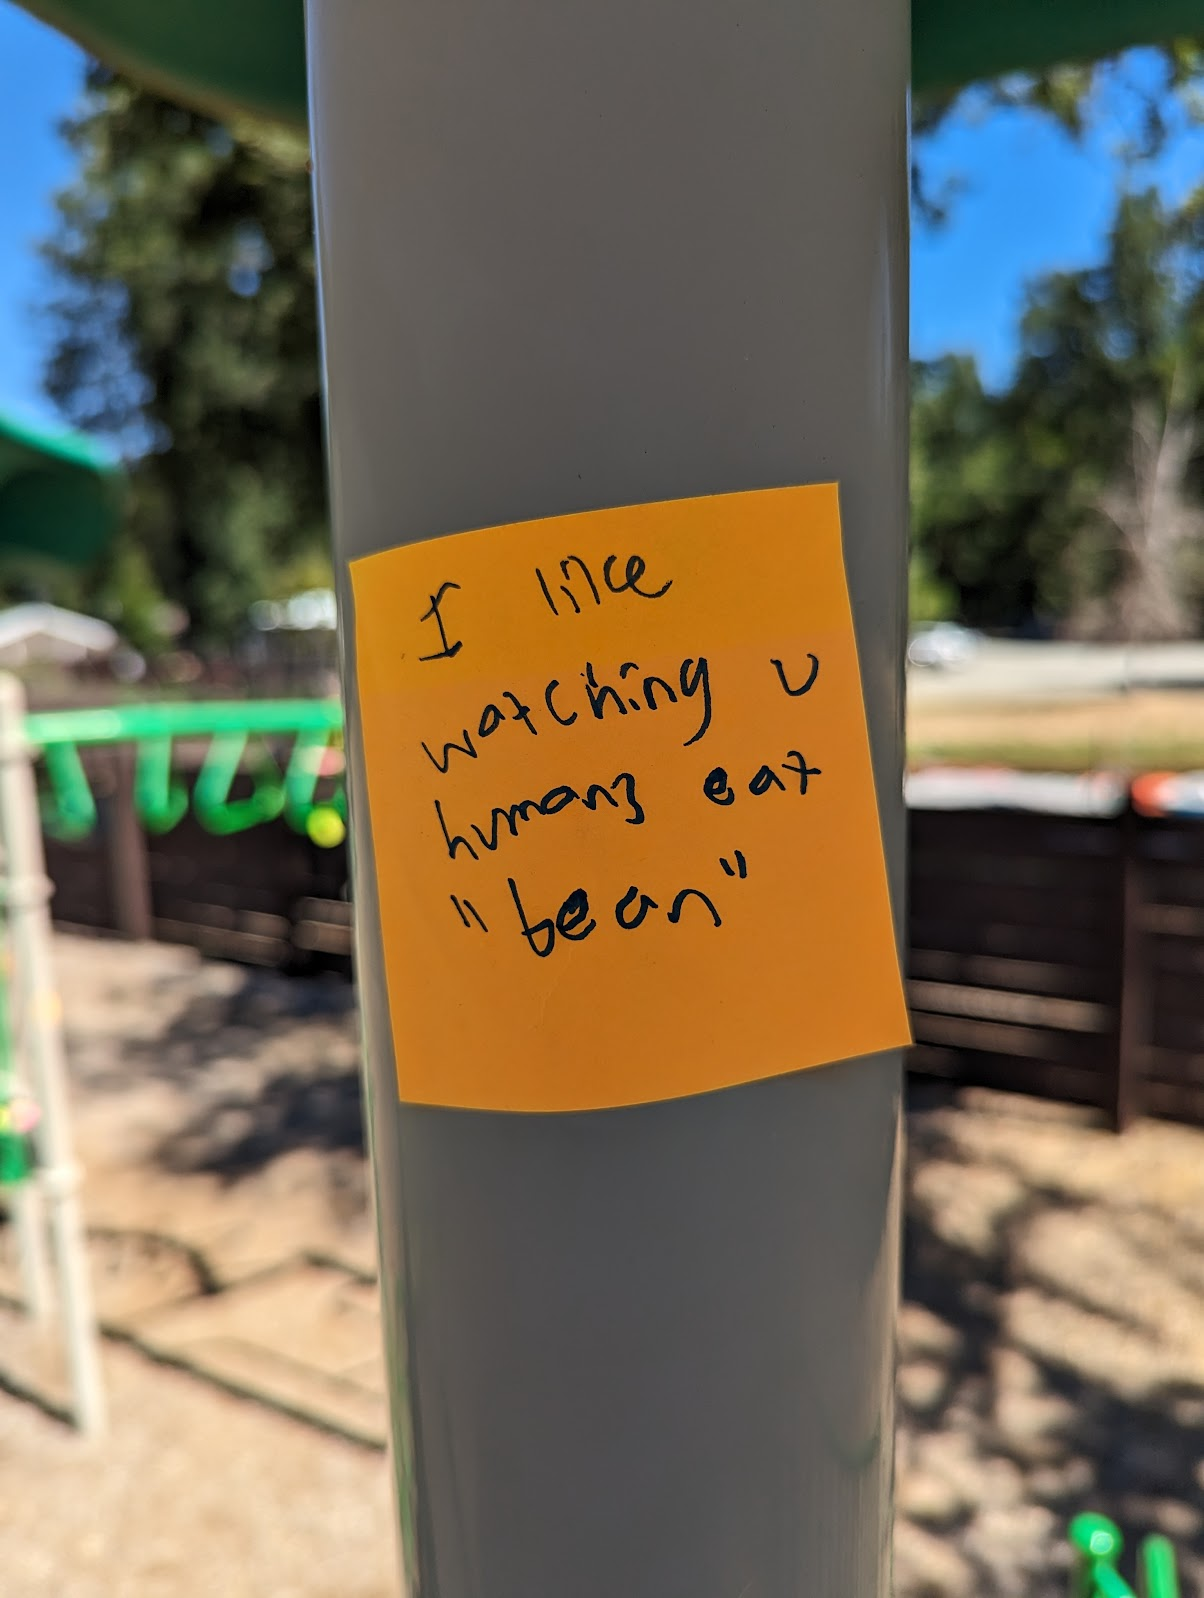 I like
watching u
humans eat
"bean"